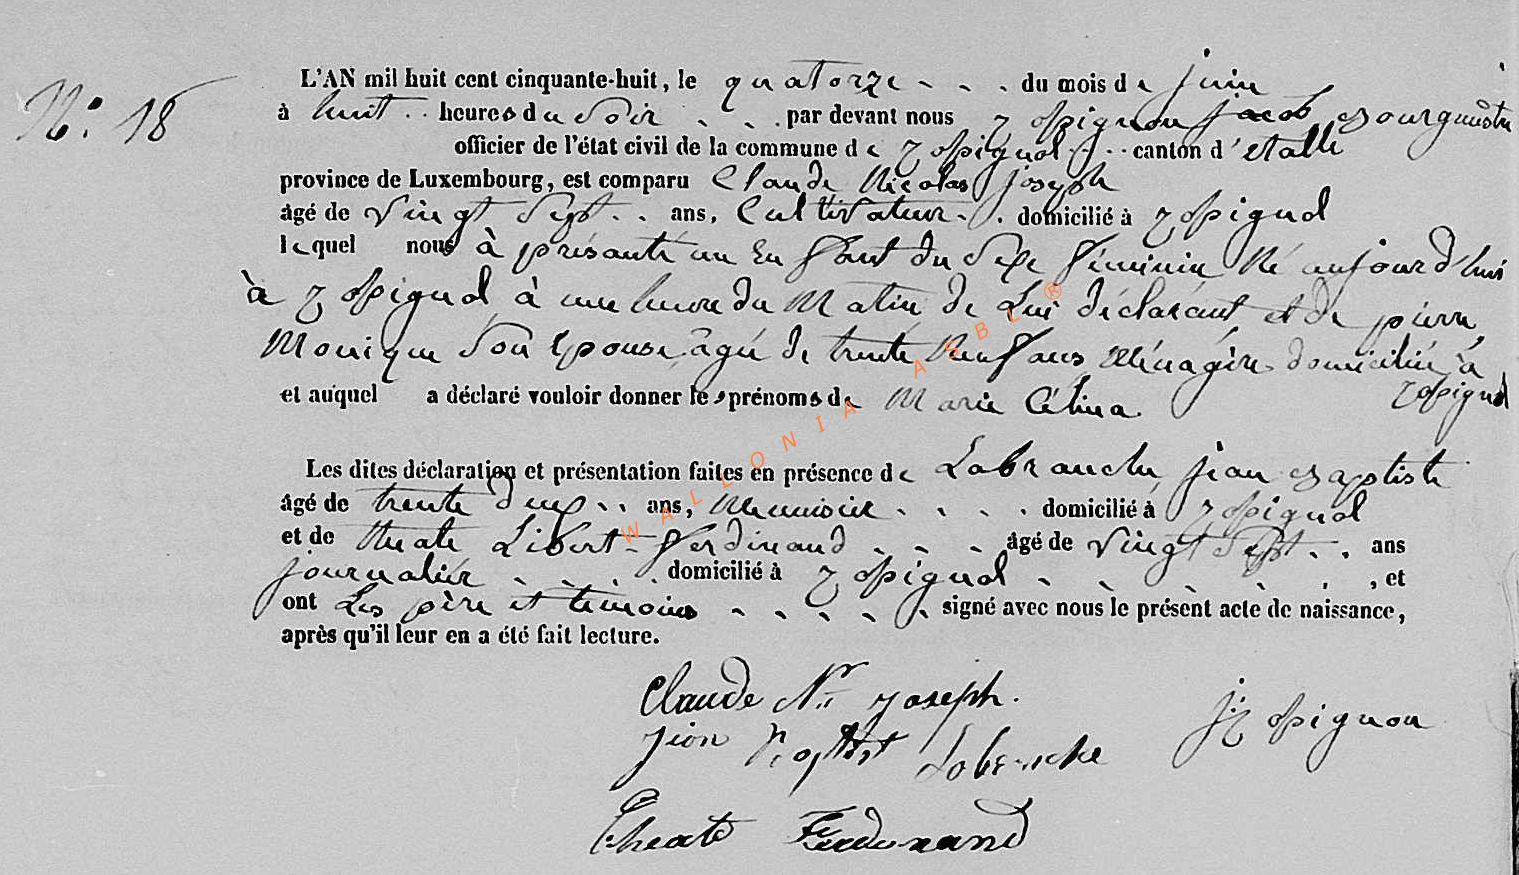 N.º 18
L'AN mil huit cent cinquante-huit, le quatorze du mois de juin
à huit heures du Soir par devant nous Rossignon Jacob Bourgmestre
officier de l'état civil de la commune de Rossignol canton d'étalle
province de Luxembourg, est comparu Claude Nicolas Joseph
âgé de Vingt Sept ans, Cultivateur domicilié à Rossignol
lequel nous à présanté un Enfant du Sexe féminin Né aujourd'hui
à Rossignol à une heure du Matin de Lui déclarant, et de pierre,
Monique Son Epouse âgée de trente Neuf ans Ménagère domiciliée à
Rossignol
et auquel a déclaré vouloir donner les prénoms de Marie Célina
Les dites déclaration et présentation faites en présence de Labranche jean Baptiste
âgé de trente deux ans, Menuisier domicilié à Rossignol
et de theate Libert ferdinand âgé de Vingt Sept ans
journalier domicilié à Rossignol, et
ont Les père et témoins signé avec nous le présent acte de naissance,
après qu'il leur en a été fait lecture.
Claude N. Joseph.
J: Rossignon
jion Labranche
Theate Ferdinand
WALLONIA ASBL ®